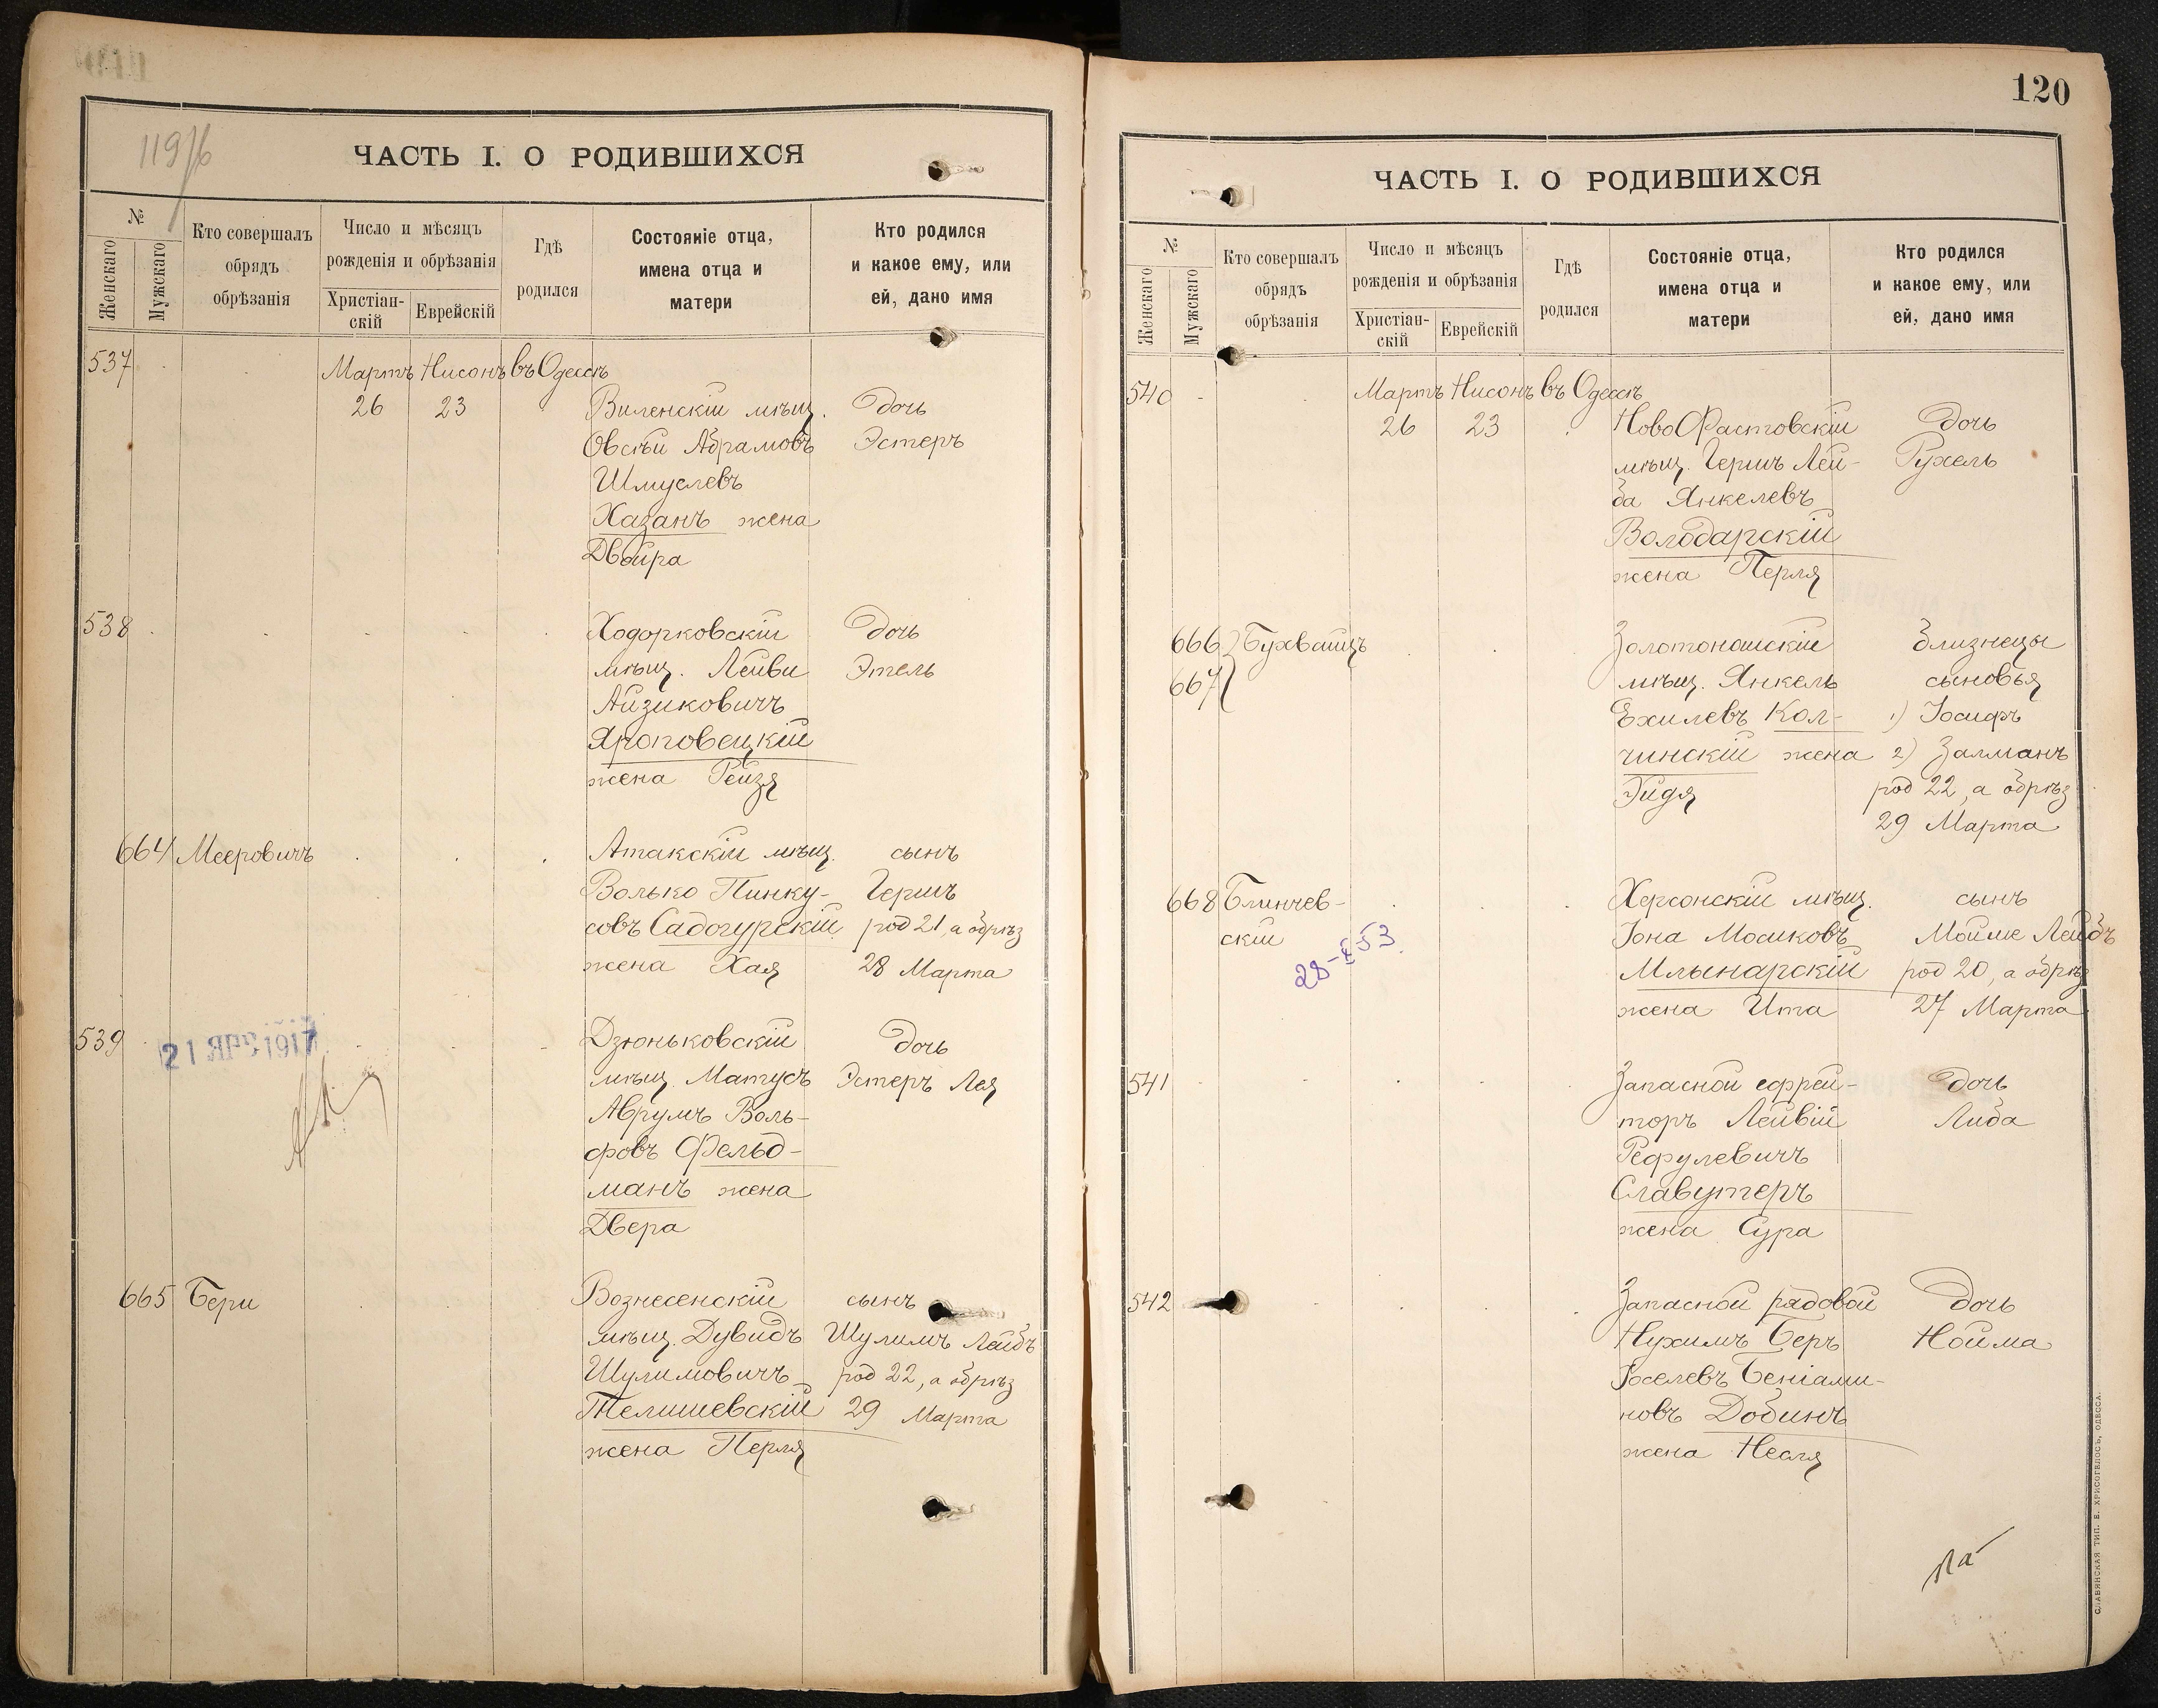 119/б
ЧАСТЬ I. О РОДИВШИХСЯ
№
Женскаго
Мужскаго
Кто совершалъ
обрядъ
обрѣзанія
Число и мѣсяцъ
рожденія и обрѣзанія
Христіан-
скій
Еврейскій
Гдѣ
родился
Состояніе отца,
имена отца и
матери
Кто родился
и какое ему, или
ей, дано имя
537
Мартъ Нисонъ въ Одессѣ
26 23 Виленскій мѣщ. Дочь
Овсѣй Абрамовъ Эстеръ
Шмулевъ
Хазанъ жена
Двойра
538 Ходорковскій Дочь
мѣщ. Лейви Этель
Айзиковичъ
Яроповецкій
жена Рейзя
664 Мееровичъ Атакскій мѣщ. сынъ
Волько Пинку- Гершъ
совъ Садогурскій род 21, а обрѣз
жена Хая 28 Марта
539 Дзюньковскій Дочь
21 АПР 1917
мѣщ. Матусъ Эстеръ Лея
Аврумъ Воль-
фовъ Фельд-
манъ жена
Двера
665 Бери Вознесенскій сынъ
мѣщ. Дувидъ Шулимъ Лейбъ
Шулимовичъ род 22, а обрѣз
Телишевскій 29 Марта
жена Перля
120
ЧАСТЬ I. О РОДИВШИХСЯ
№
Женскаго
Мужскаго
Кто совершалъ
обрядъ
обрѣзанія
Число и мѣсяцъ
рожденія и обрѣзанія
Христіан-
скій
Еврейскій
Гдѣ
родился
Состояніе отца,
имена отца и
матери
Кто родился
и какое ему, или
ей, дано имя
540 Мартъ Нисонъ въ Одессѣ
26 23 НовоФастовскій Дочь
мѣщ. Гершъ Лей- Рухель
ба Янкелевъ
Володарскій
жена Перля
666 Бухвайцъ Золотоношскій Близнецы
667 мѣщ. Янкель сыновья
Ехилевъ Кол- 1) Іосифъ
чинскій жена 2) Залманъ
Гидя род 22, а обрѣз
29 Марта
668 Блинчев- Херсонскій мѣщ. сынъ
скій Іона Мошковъ Мойше Лейбъ
28-X-53
Млынарскій род 20, а обрѣз
жена Ита 27 Марта
541 Запасной ефрей- Дочь
торъ Лейвій Либа
Рефулевичъ
Славутеръ
жена Сура
542 Запасной рядовой Дочь
Нухимъ Беръ Нойма
Іоселевъ Беніами-
новъ Добинъ
жена Несля
СЛАВЯНСКАЯ ТИП. Е. ХРИСОГЕЛОСЪ, ОДЕССА.